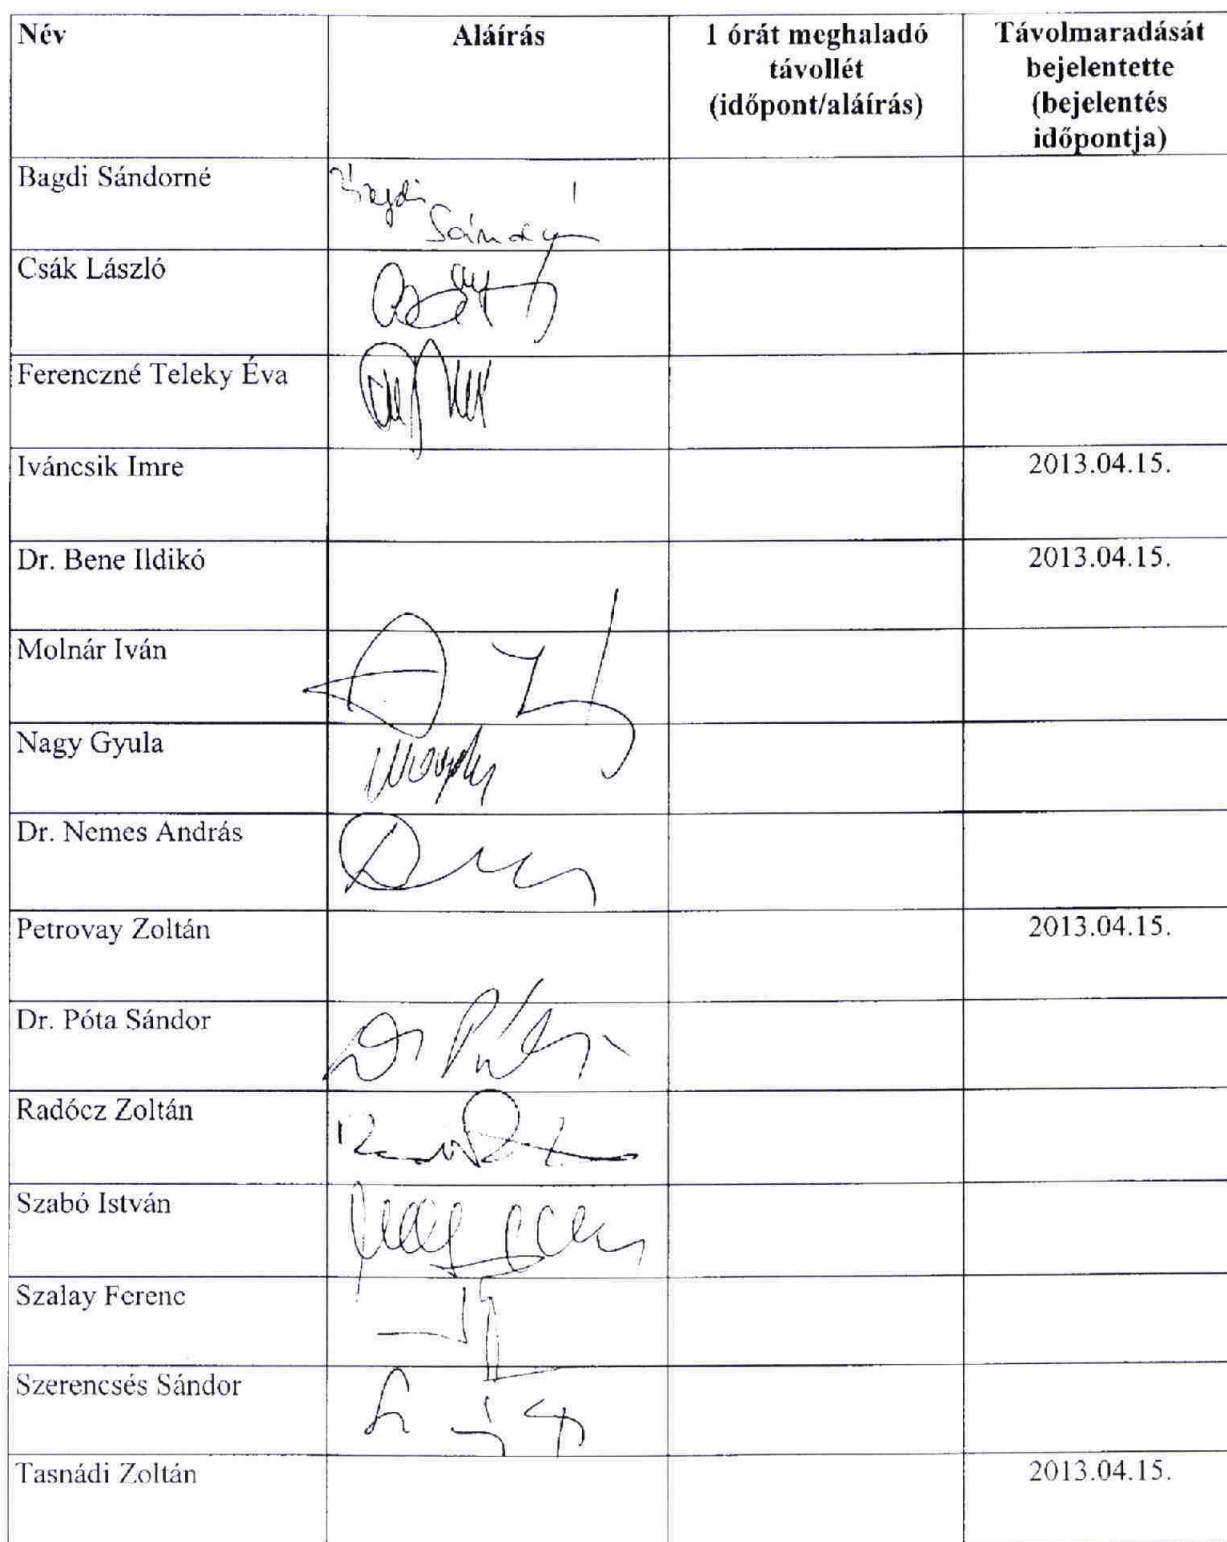 Név
Aláírás
1 órát meghaladó
távollét
(időpont/aláírás)
Távolmaradását
bejelentette
(bejelentés
időpontja)
Bagdi Sándorné
Bagdi
Csák László
Ferenczné Teleky Éva
Iváncsik Imre
2013.04.15.
Dr. Bene Ildikó
2013.04.15.
Molnár Iván
Nagy Gyula
Dr. Nemes András
Petrovay Zoltán
2013.04.15.
Dr. Póta Sándor
Radócz Zoltán
Szabó István
Szalay Ferenc
Szerencsés Sándor
Tasnádi Zoltán
2013.04.15.